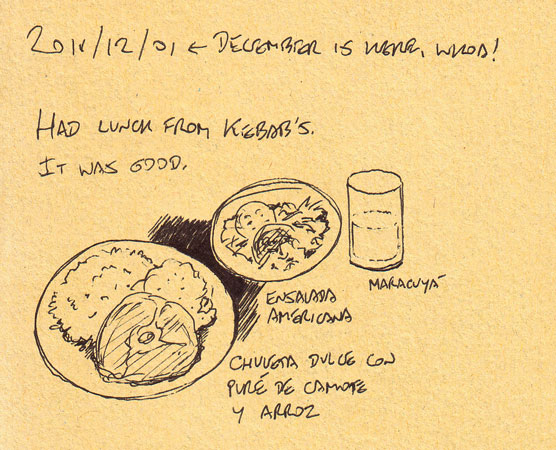 2011/12/01 ← DECEMBER IS HERE, WHOA!
HAD LUNCH FROM KEBAB'S.
IT WAS GOOD.
ENSALADA
AMERICANA
MARACUYÁ
CHULETA DULCE CON
PURÉ DE CAMOTE
Y ARROZ